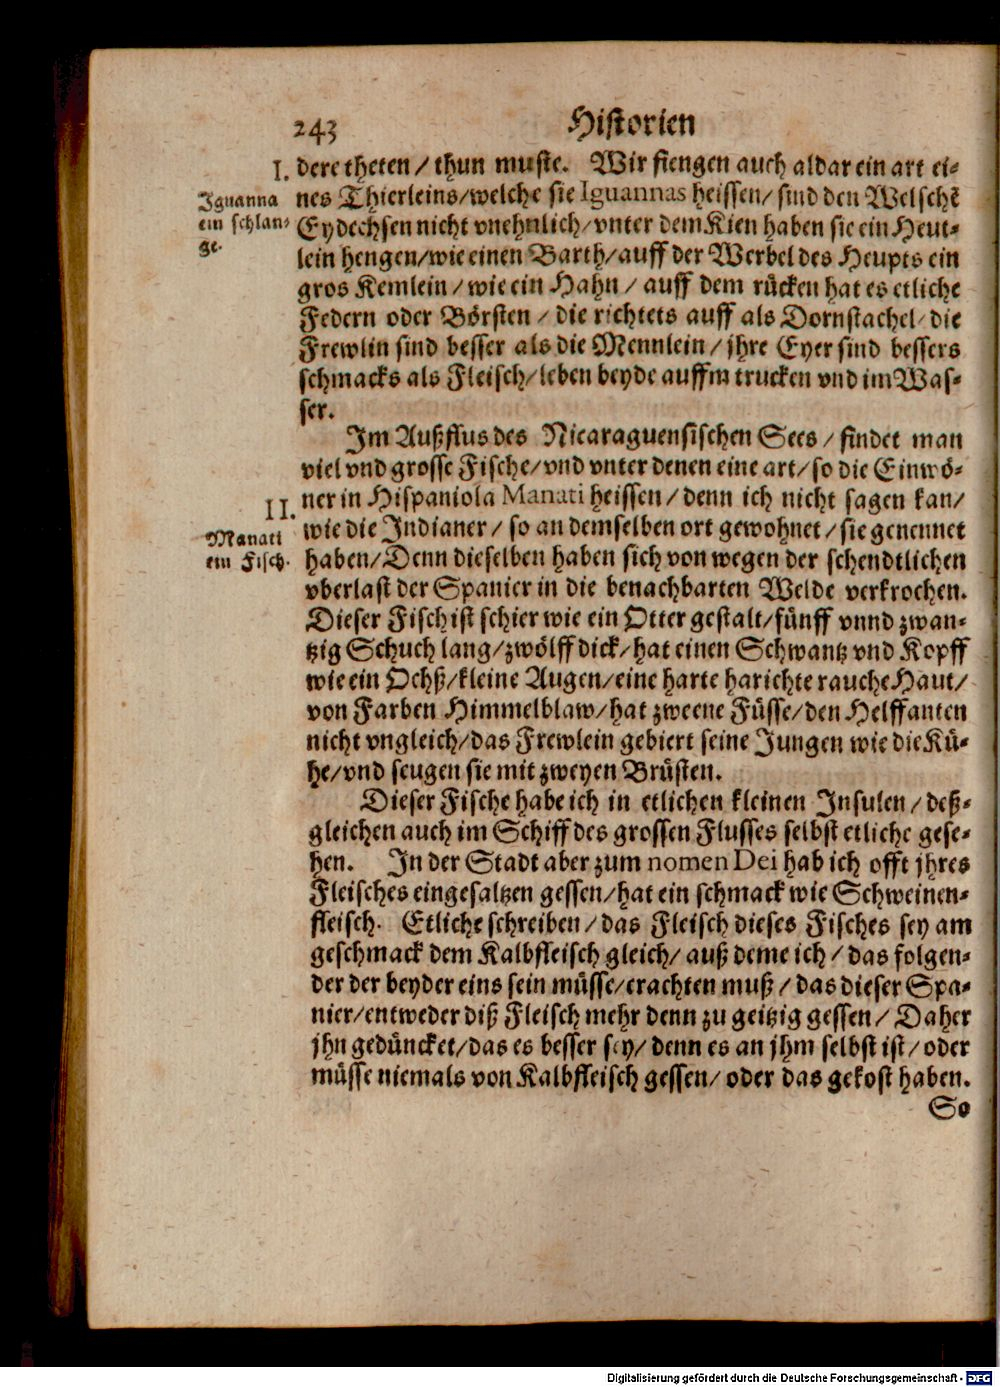 243 Historien
I.
dere theten / thun muste. Wir fiengen auch aldar ein art ei-
Iguanna
ein schlan-
ge.
nes Thierleins / welche sie Iguannas heissen / sind den Welschē
Eydechsen nicht vnehnlich / vnter dem Kien haben sie ein Heut-
lein hengen / wie einen Barth / auff der Werbel des Heupts ein
gros Kemlein / wie ein Hahn / auff dem rücken hat es etliche
Federn oder Börsten / die richtets auff als Dornstachel / die
Frewlin sind besser als die Mennlein / jhre Eyer sind bessers
schmacks als Fleisch / leben beyde auffm trucken vnd im Was-
ser.
Im Außflus des Nicaraguensischen Sees / findet man
viel vnd grosse Fische / vnd vnter denen eine art / so die Einwö-
II.
ner in Hispaniola Manati heissen / denn ich nicht sagen kan /
Manati
ein Fisch.
wie die Indianer / so an demselben ort gewohnet / sie genennet
haben / Denn dieselben haben sich von wegen der schendtlichen
vberlast der Spanier in die benachbarten Welde verkrochen.
Dieser Fisch ist schier wie ein Otter gestalt / fünff vnnd zwan-
tzig Schuch lang / zwölff dick / hat einen Schwantz vnd Kopff
wie ein Ochß / kleine Augen / eine harte harichte rauche Haut /
von Farben Himmelblaw / hat zweene Füsse / den Helffanten
nicht vngleich / das Frewlein gebiert seine Jungen wie die Kü-
he / vnd seugen sie mit zweyen Brüsten.
Dieser Fische habe ich in etlichen kleinen Insulen / deß-
gleichen auch im Schiff des grossen Flusses selbst etliche gese-
hen. In der Stadt aber zum nomen Dei hab ich offt jhres
Fleisches eingesaltzen gessen / hat ein schmack wie Schweinen-
fleisch. Etliche schreiben / das Fleisch dieses Fisches sey am
geschmack dem Kalbfleisch gleich / auß deme ich / das folgen-
der der beyder eins sein müsse / erachten muß / das dieser Spa-
nier / entweder diß Fleisch mehr denn zu geitzig gessen / Daher
jhn gedüncket / das es besser sey / denn es an jhm selbst ist / oder
müsse niemals von Kalbfleisch gessen / oder das gekost haben.
So
Digitalisierung gefördert durch die Deutsche Forschungsgemeinschaft - DFG